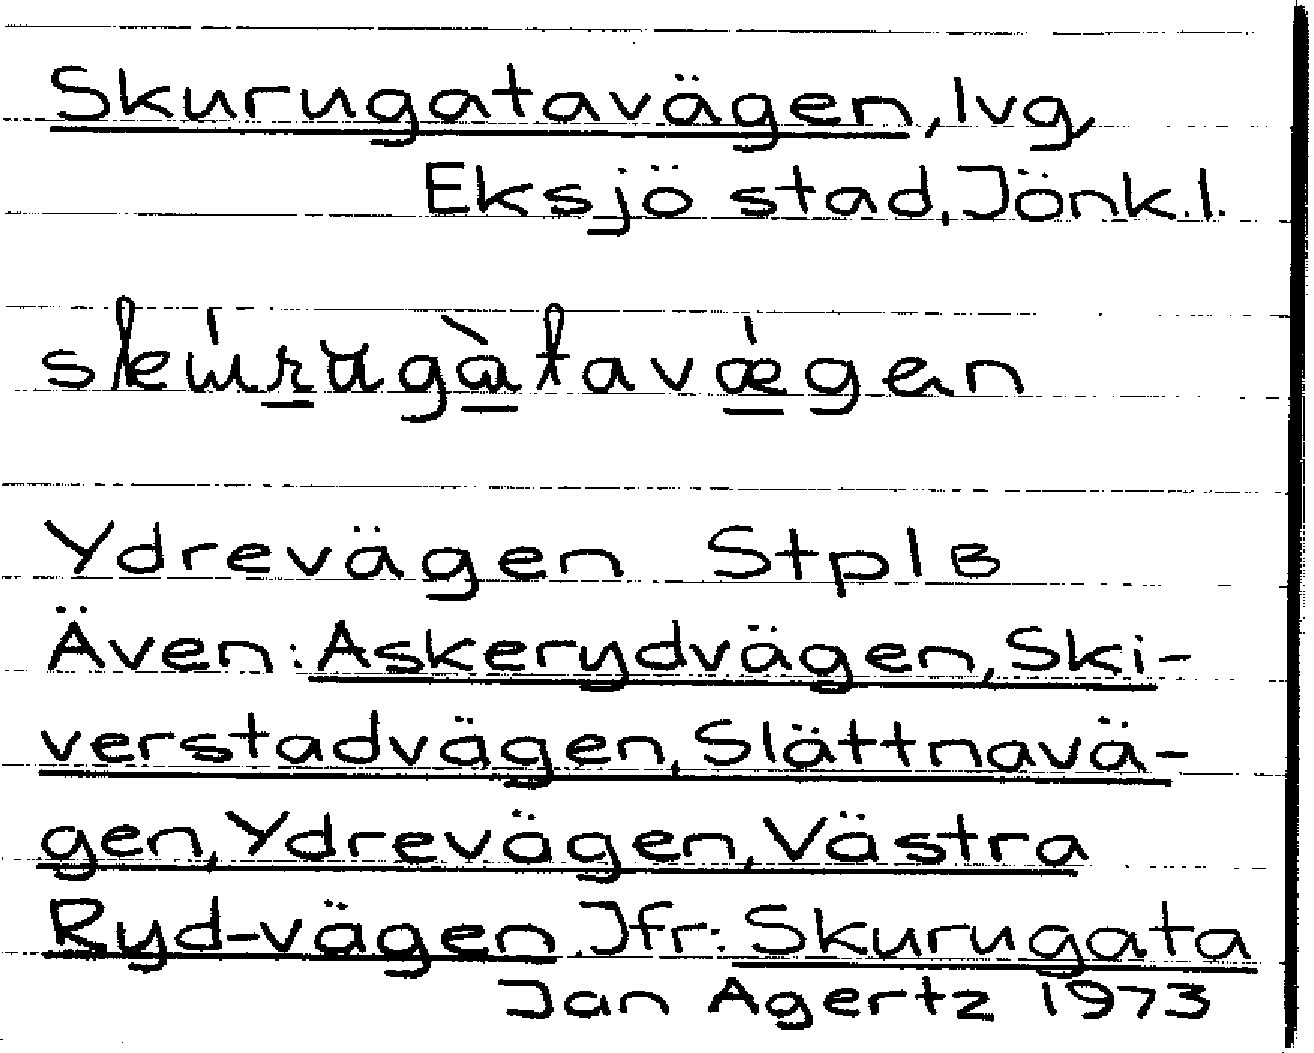 Skurugatavägen, lvg,
Eksjö stad, Jönk. l.
skúrugàtavǽgen
Ydrevägen StplB
Även: Askerydvägen, Ski-
verstadvägen, Slättnavä-
gen, Ydrevägen, Västra
Ryd-vägen. Jfr: Skurugata
Jan Agertz 1973